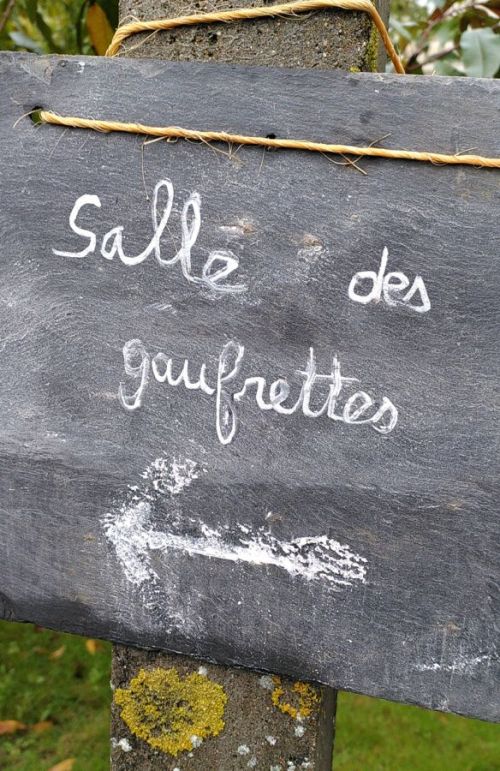 Salle des
gaufrettes